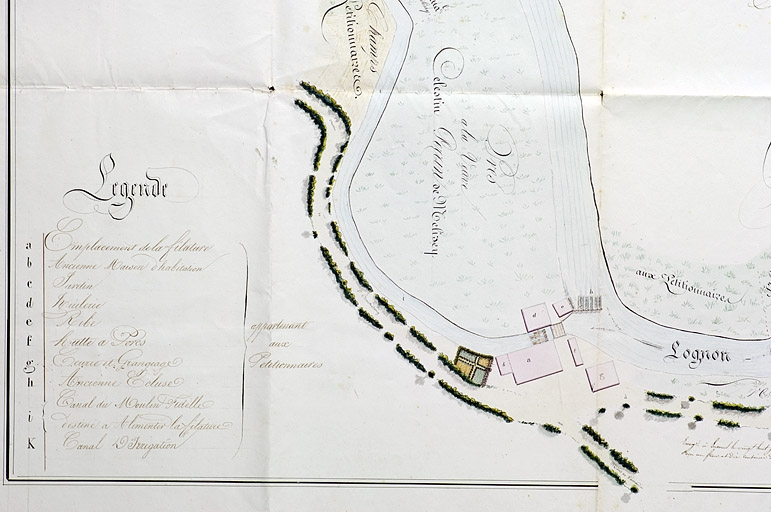 Champs
Petitionnaires
Prés
a la Veuve
Celestin Pequin de Melisey
Legende
a Emplacement de la filature
b Ancienne Maison d'habitation
c Jardin
d Huilerie
e Ribe
f hutte a Porcs
g Ecurie et Grangeage
h Ancienne Ecluse
i Canal du Moulin Fidelle
destiné a Alimenter la filature
K Canal D'Irrigation
appartenant
aux
Petitionnaires
aux Petitionnaires
Lognon